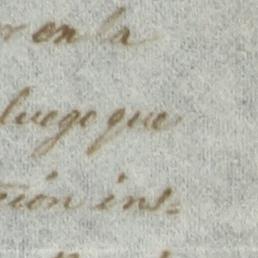 r en la
luego que
cion ins-